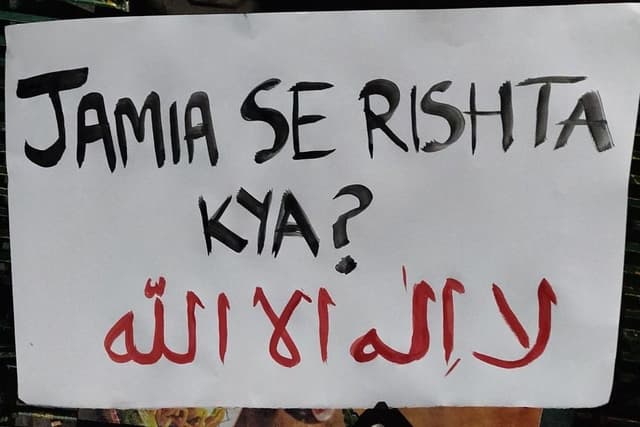 JAMIA SE RISHTA
KYA?
لا إلٰه الا اللّه